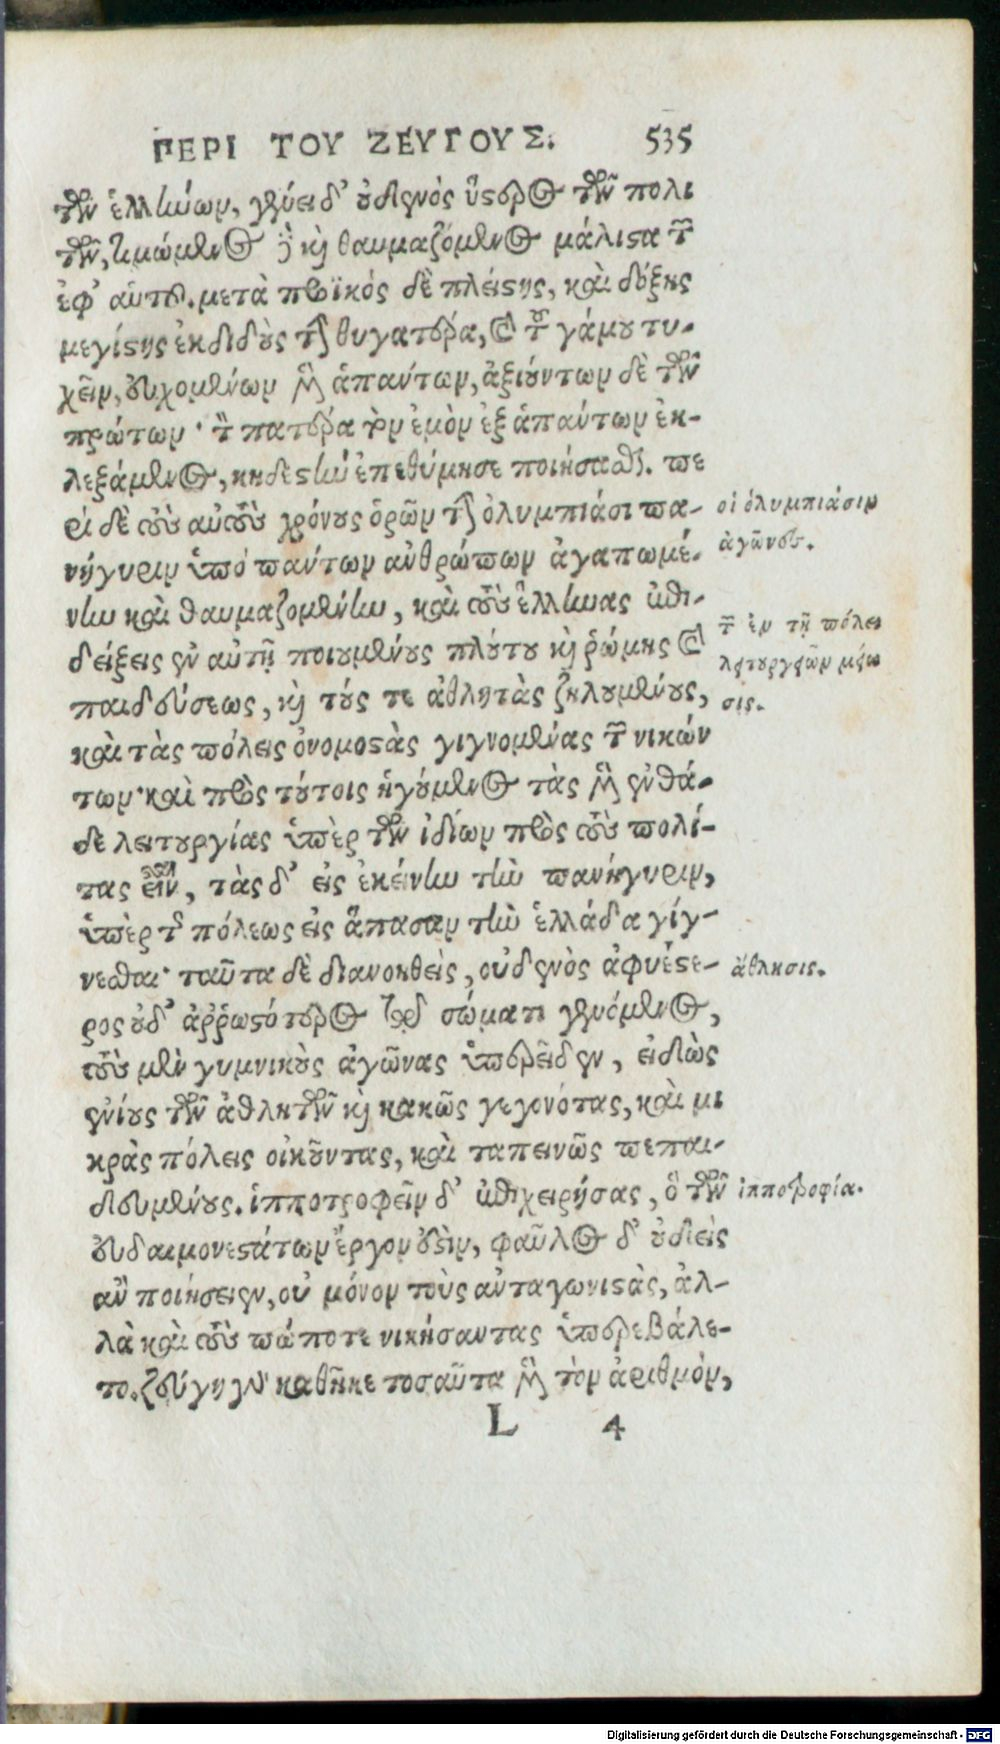 ΠΕΡΙ ΤΟΥ ΖΕΥΓΟΥΣ. 535
τῶν ἑλλήνων, γένει δ' οὐδενὸς ὕστερος τῶν πολι
τῶν, τιμώμενος δὲ καὶ θαυμαζόμενος μάλιστα τῶν
ἐφ' αὑτοῦ. μετὰ προϊκὸς δὲ πλείστης, καὶ δόξης
μεγίστης ἐκδιδοὺς τὴν θυγατέρα, καὶ τοῦ γάμου τυ-
χεῖν, εὐχομένων μὲν ἁπάντων, ἀξιούντων δὲ τῶν
πρώτων· τὸν πατέρα τὸν ἐμὸν ἐξ ἁπάντων ἐκ-
λεξάμενος, κηδεστὴν ἐπεθύμησε ποιήσασθαι. πε
ρὶ δὲ τοὺς αὐτοὺς χρόνους ὁρῶν τὴν ὀλυμπιάσι πα-
νήγυριν ὑπὸ πάντων ἀνθρώπων ἀγαπωμέ-
νην καὶ θαυμαζομένην, καὶ τοὺς ἕλληνας ἐπι-
δείξεις ἐν αὐτῇ ποιουμένους πλούτου καὶ ῥώμης καὶ
παιδεύσεως, καὶ τούς τε ἀθλητὰς ζηλουμένους,
καὶ τὰς πόλεις ὀνομαστὰς γιγνομένας τῶν νικών
των· καὶ πρὸς τούτοις ἡγούμενος τὰς μὲν ἐνθά-
δε λειτουργίας ὑπὲρ τῶν ἰδίων πρὸς τοὺς πολί-
τας εἶναι, τὰς δ' εἰς ἐκείνην τὴν πανήγυριν,
ὑπὲρ τῆς πόλεως εἰς ἅπασαν τὴν ἑλλάδα γίγ-
νεσθαι· ταῦτα δὲ διανοηθεὶς, οὐδενὸς ἀφυέστε-
ρος οὐδ' ἀῤῥωστότερος τῷ σώματι γενόμενος,
τοὺς μὲν γυμνικοὺς ἀγῶνας ὑπερεῖδεν, εἰδὼς
ἐνίους τῶν ἀθλητῶν καὶ κακῶς γεγονότας, καὶ μι
κρὰς πόλεις οἰκοῦντας, καὶ ταπεινῶς πεπαι-
δευμένους. ἱπποτροφεῖν δ' ἐπιχειρήσας, ὃ τῶν
εὐδαιμονεστάτων ἔργον ἐστὶν, φαῦλος δ' οὐδεὶς
ἂν ποιήσειεν, οὐ μόνον τοὺς ἀνταγωνιστὰς, ἀλ-
λὰ καὶ τοὺς πώποτε νικήσαντας ὑπερεβάλε-
το. ζεύγη γὰρ καθῆκε τοσαῦτα μὲν τὸν ἀριθμὸν,
L 4
οἱ ὀλυμπιάσιν
ἀγῶνες.
τῶν ἐν τῇ πόλει
λειτουργιῶν μείω
σις.
ἄθλησις.
ἱπποτροφία.
Digitalisierung gefördert durch die Deutsche Forschungsgemeinschaft - DFG